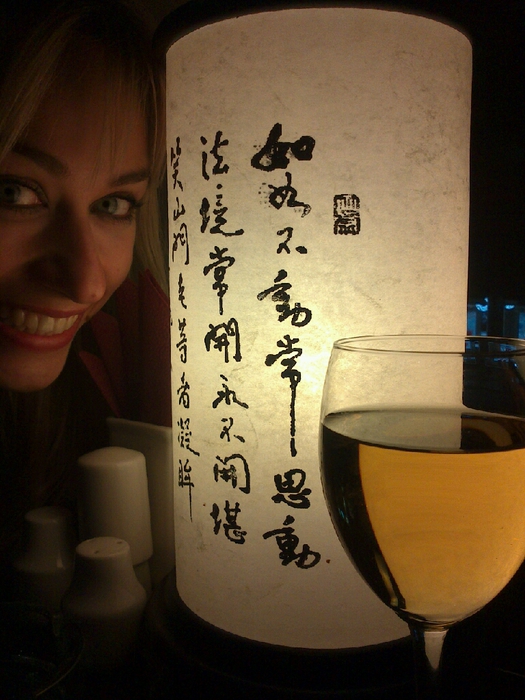 如如不動常思動
法境常開永不開堪
笑山門老等者凝眸